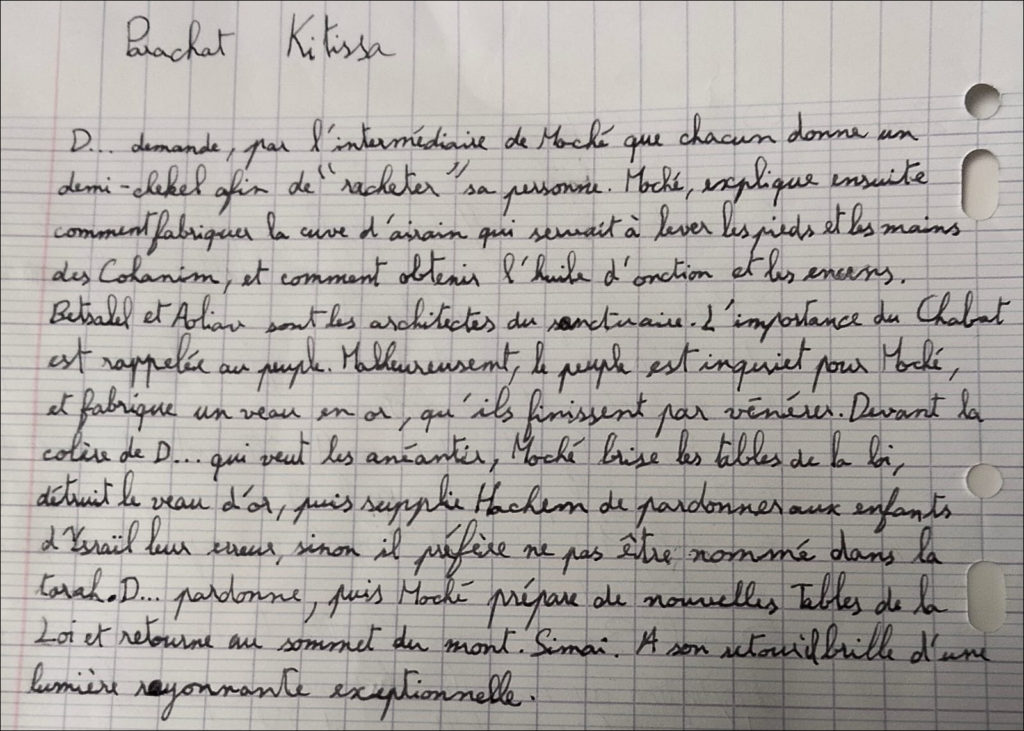 Parachat Kitissa
D... demande, par l'intermédiaire de Moché que chacun donne un
demi-chekel afin de "racheter" sa personne. Moché, explique ensuite
comment fabriquer la cuve d'airain qui servait à laver les pieds et les mains
des Cohanim, et comment obtenir l'huile d'onction et les encens.
Betsalel et Aoliav sont les architectes du sanctuaire. L'importance du Chabat
est rappelée au peuple. Malheureusemt, le peuple est inquiet pour Moché,
et fabrique un veau en or, qu'ils finissent par vénérer. Devant la
colère de D... qui veut les anéantir, Moché brise les tables de la loi,
détruit le veau d'or, puis supplie Hachem de pardonner aux enfants
d'Israël leur erreur, sinon il préfère ne pas être nommé dans la
torah. D... pardonne, puis Moché prépare de nouvelles Tables de la
Loi et retourne au sommet du mont. Sinaï. A son retour il brille d'une
lumière rayonnante exceptionnelle.